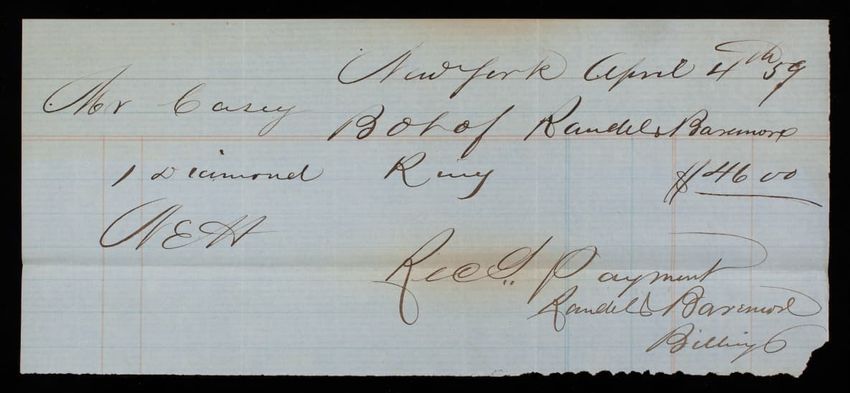 New York April 4th 59
Mr Casey
Bot of Randel & Baremore
1 Diamond Ring $46 00
Rec'd. Payment
Randel & Baremore
Billings